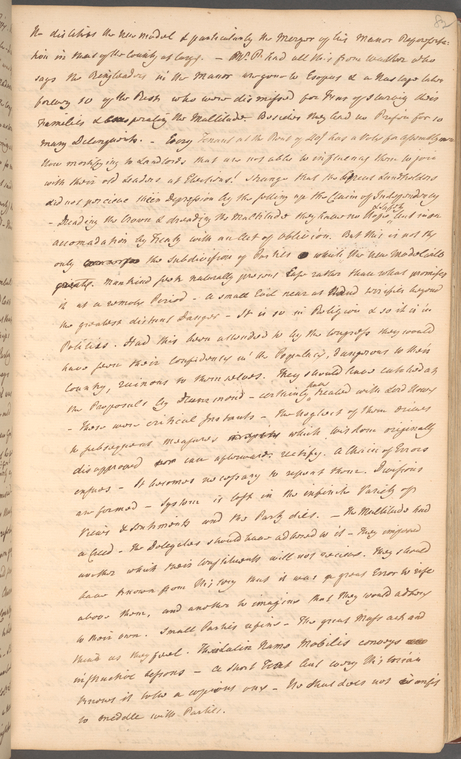 82
He dislikes the new model & particularly the Merger of his Manor Representa-
tion in that of the County at large. – had all this from Walther who
says the Ringleaders in the Manor are gone to Esopus & a Hostage taken
for every 10 of the Rest who were dismissed for Fear of starving their
Families & the Multitude. Besides they had no Prison for so
many Delinquents. – Every Tenant at the Rent of 40/ has a Vote for Assembly
How mortifying to Landlords that are not able to influence them to join
with their old Leaders at Elections! Strange that the Great Landholders
did not perceive their Depression by the setting up the Claim of Independency
– Dreading the Crown & dreading the Multitude they have no Hope left but in an
accomadation by Treaty with an Act of oblivion. But this is not the
only the Subdivision of Parties while the new Model
Mankind seek naturally precious rather than what promises
it at a remote Period. A small Evil near at Hand terrifies beyond
the greatest distant Danger – It is so in Religion & so it is in
Politics. Had this been attended to by the Congress they would
have seen their Confidency in the Populacy, dangerous to their
Country, ruinous to themselves. They should have catched at
the Proposals by Drummond – certainly have treated with Lord Howe
– These were critical Instants – the Neglect of them drives
to subsequent measures which Wisdom originally
disapproved nor can afterwards rectify. A Chain of Errors
ensues – It becomes necessary to repeat them. Divisions
are formed – System is lost in the infinite Variety of
Views & Sentiments and the Party dies. – The Multitude had
a Creed – the Delegates should have adhered to it – They imposed
another which their Constituents will not receive. They should
have known from History that it was a great Error to rise
above them, and another to imagine that they would adhere
to their own. Small Parties refine – The great Mass act and
think as they feel. The Latin Name Mobilis conveys
instructive Lessons – A short Text but every Historian
knows it to be a copious one – He that does not is unfit
to meddle with Parties.